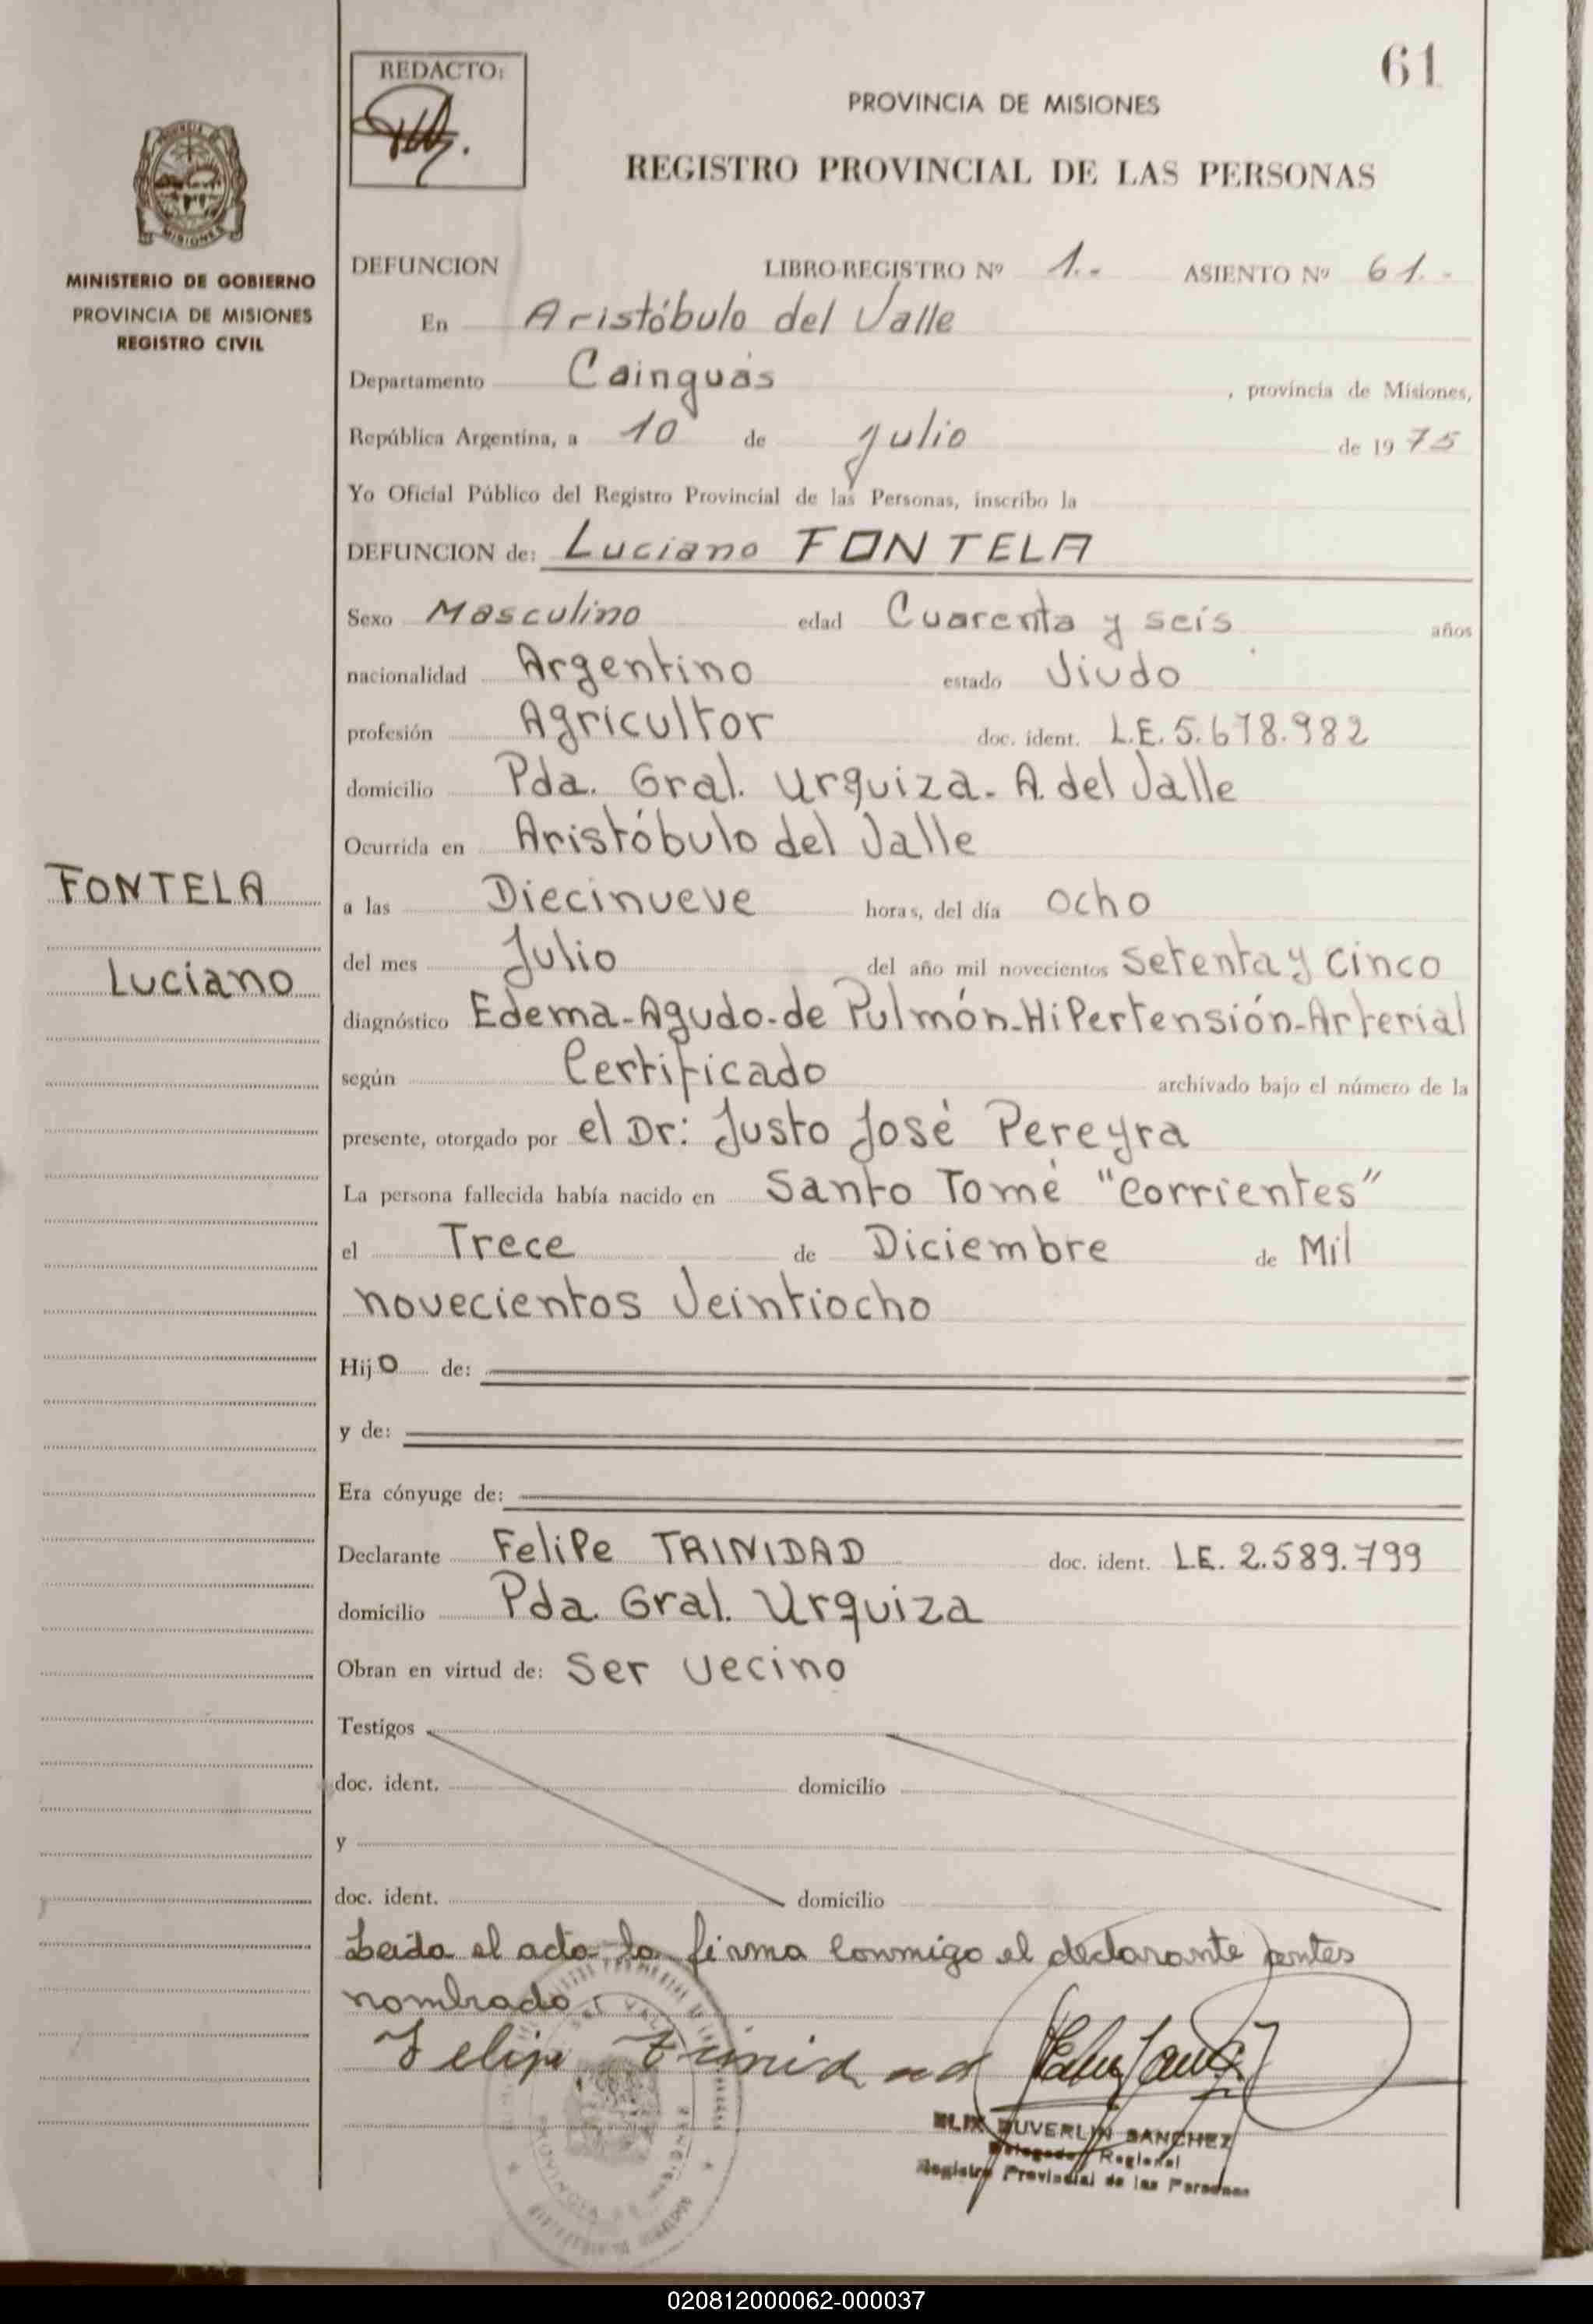 61
REDACTO:
PROVINCIA DE MISIONES
REGISTRO PROVINCIAL DE LAS PERSONAS
MISIONES
MINISTERIO DE GOBIERNO
PROVINCIA DE MISIONES
REGISTRO CIVIL
DEFUNCION LIBRO-REGISTRO Nº 1.- ASIENTO Nº 61.-
En Aristóbulo del Valle
Departamento Cainguás, provincia de Misiones,
República Argentina, a 10 de julio de 1975
Yo Oficial Público del Registro Provincial de las Personas, inscribo la
DEFUNCION de: Luciano FONTELA
Sexo Masculino edad Cuarenta y seis años
nacionalidad Argentino estado Viudo
profesión Agricultor doc. ident. L.E. 5.678.982
domicilio Pda. Gral. Urquiza. A. del Valle
Ocurrida en Aristóbulo del Valle
FONTELA
Luciano
a las Diecinueve horas, del día ocho
del mes Julio del año mil novecientos setenta y cinco
diagnóstico Edema-Agudo-de Pulmón-HiPertensión-Arterial
según Certificado archivado bajo el número de la
presente, otorgado por el Dr: Justo José Pereyra
La persona fallecida había nacido en Santo Tomé "Corrientes"
el Trece de Diciembre de Mil
novecientos Veintiocho
Hijo de:
y de:
Era cónyuge de:
Declarante FeliPe TRINIDAD doc. ident. L.E. 2.589.799
domicilio Pda. Gral. Urquiza
Obran en virtud de: Ser vecino
Testigos
doc. ident. domicilio
y
doc. ident. domicilio
Leida el acta la firma conmigo el declarante antes
nombrado
Felipe Trinidad
ELIX DUVERLIN SANCHEZ
Delegado Regional
Registro Provincial de las Personas
020812000062-000037